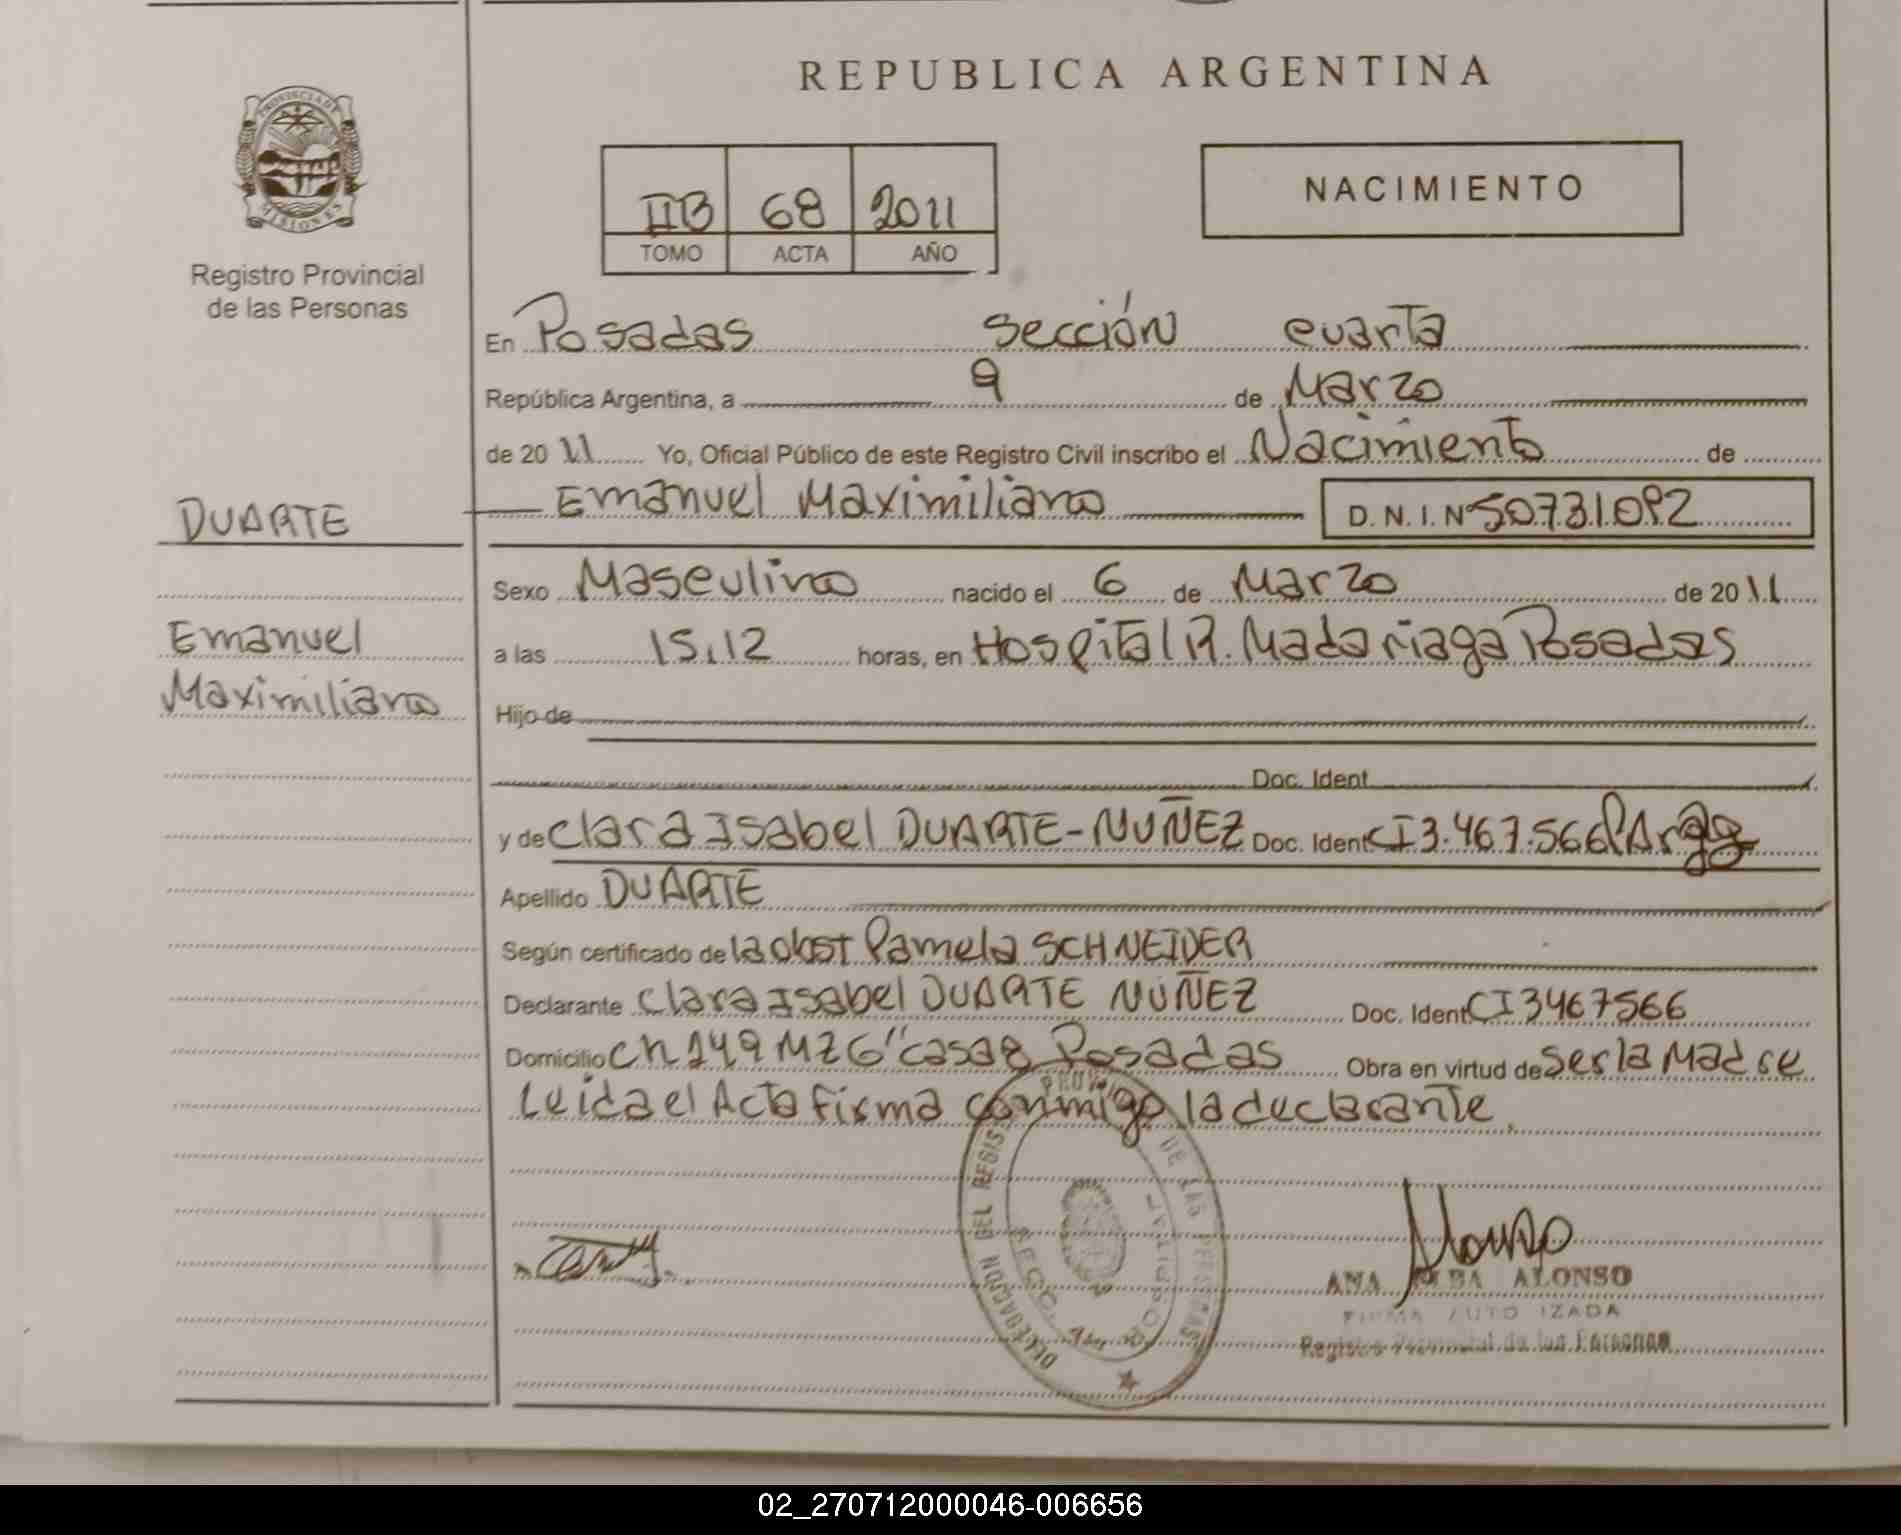 REPUBLICA ARGENTINA
PROVINCIA DE MISIONES
Registro Provincial
de las Personas
IIB 68 2011
TOMO ACTA AÑO
NACIMIENTO
En Posadas Sección cuarta
República Argentina, a 9 de Marzo
de 2011 Yo, Oficial Público de este Registro Civil inscribo el Nacimiento de
DUARTE
Emanuel Maximiliano D.N.I. Nº 50731092
Sexo Masculino nacido el 6 de Marzo de 2011
Emanuel
Maximiliano
a las 15,12 horas, en Hospital R. Madariaga Posadas
Hijo de
Doc. Ident.
y de Clara Isabel DUARTE-NUÑEZ Doc. Ident CI 3.467.566
Apellido DUARTE
Según certificado de la obst Pamela SCHNEIDER
Declarante Clara Isabel DUARTE NUÑEZ Doc. Ident CI 3467566
Domicilio Ch 149 MZ G" casa 8 Posadas Obra en virtud de ser la Madre
Leida el Acta firma conmigo la declarante.
DELEGACION DEL REGIST PROV. DE LAS PERSONAS
SECC. HOSPITAL
ANA ALBA ALONSO
FIRMA AUTORIZADA
Registro Provincial de las Personas
02_270712000046-006656